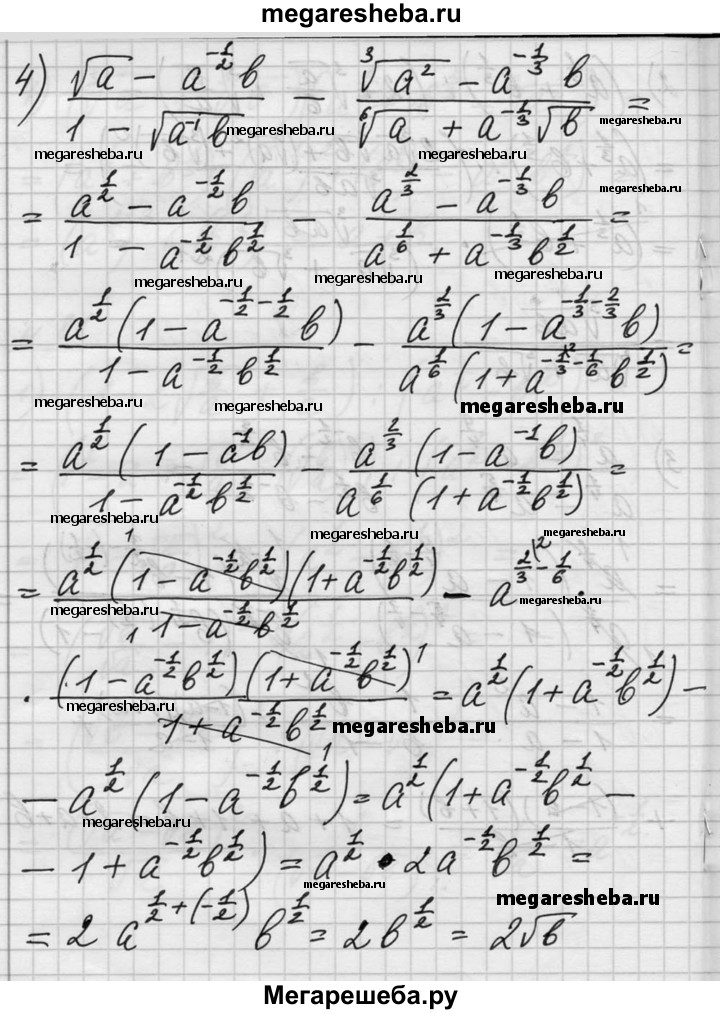 megaresheba.ru
4) (√a − a^(-1/2) b)/(1 − √(a^(-1) b)) − (∛(a^2) − a^(-1/3) b)/(⁶√a + a^(-1/3) √b) =
megaresheba.ru megaresheba.ru megaresheba.ru megaresheba.ru
= (a^(1/2) − a^(-1/2) b)/(1 − a^(-1/2) b^(1/2)) − (a^(2/3) − a^(-1/3) b)/(a^(1/6) + a^(-1/3) b^(1/2)) =
megaresheba.ru megaresheba.ru megaresheba.ru
= a^(1/2) (1 − a^(-1/2-1/2) b)/(1 − a^(-1/2) b^(1/2)) − a^(2/3) (1 − a^(-1/3-2/3) b)/(a^(1/6) (1 + a^(-1/3\2-1/6) b^(1/2))) =
megaresheba.ru megaresheba.ru megaresheba.ru
= a^(1/2) (1 − a^(-1) b)/(1 − a^(-1/2) b^(1/2)) − a^(2/3) (1 − a^(-1) b)/(a^(1/6) (1 + a^(-1/2) b^(1/2))) =
megaresheba.ru megaresheba.ru megaresheba.ru
= a^(1/2) (1 − a^(-1/2) b^(1/2))^1 (1 + a^(-1/2) b^(1/2))/(1 1 − a^(-1/2) b^(1/2)) − a^(2/3\2 - 1/6) ·
megaresheba.ru megaresheba.ru
· (1 − a^(-1/2) b^(1/2)) (1 + a^(-1/2) b^(1/2))^1/(1 + a^(-1/2) b^(1/2) 1) = a^(1/2) (1 + a^(-1/2) b^(1/2)) −
megaresheba.ru megaresheba.ru
− a^(1/2) (1 − a^(-1/2) b^(1/2)) = a^(1/2) (1 + a^(-1/2) b^(1/2) −
megaresheba.ru megaresheba.ru
− 1 + a^(-1/2) b^(1/2)) = a^(1/2) · 2a^(-1/2) b^(1/2) =
megaresheba.ru megaresheba.ru
= 2 a^(1/2+(-1/2)) b^(1/2) = 2b^(1/2) = 2√b
Мегарешеба.ру